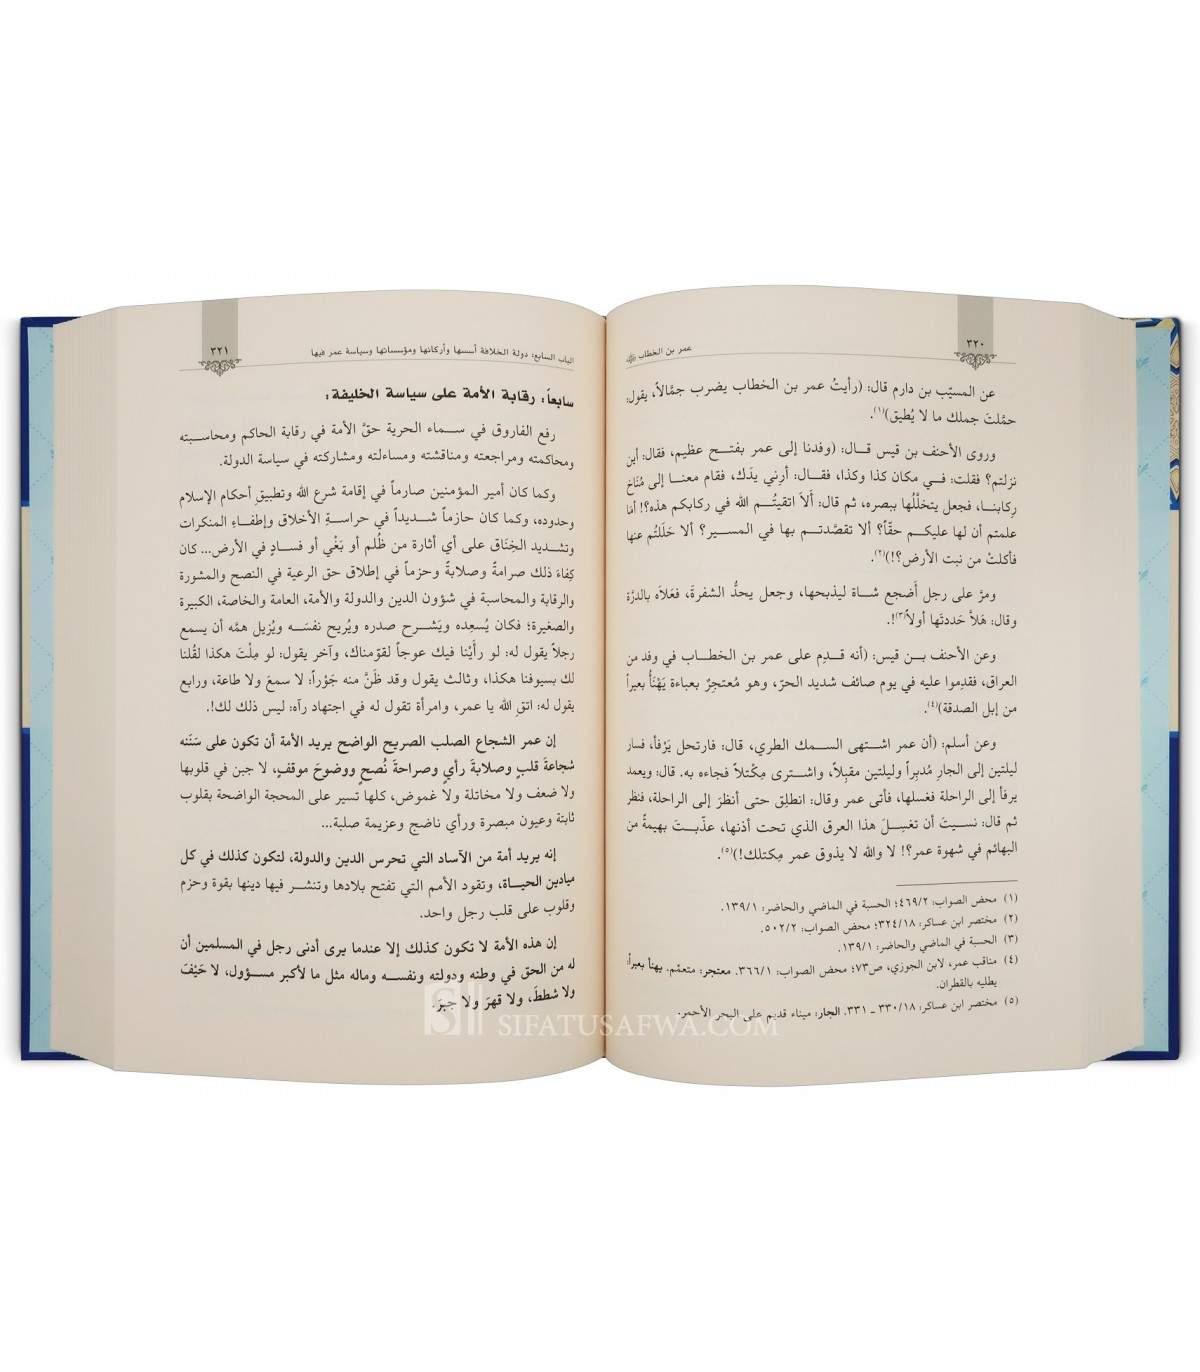 ٣٢٠
عمر بن الخطاب
عن المسيّب بن دارم قال: (رأيتُ عمر بن الخطاب يضرب جمَّالاً، يقول:
حمَّلتَ جملك ما لا يُطيق)(١).
وروى الأحنف بن قيس قال: (وفدنا إلى عمر بفتح عظيم، فقال: أين
نزلتم؟ فقلت: في مكان كذا وكذا، فقال: أرِني يدَك، فقام معنا إلى مُنَاخ
رِكابنا، فجعل يتخلَّلُها ببصره، ثم قال: أَلاَ اتقيتُم الله في ركابكم هذه؟! أمَا
علمتم أن لها عليكم حقّاً؟ ألا تقصَّدتم بها في المسير؟ ألا حَلَلتُم عنها
فأكلتْ من نبت الأرض؟!)(٢).
ومرَّ على رجل أضجع شاة ليذبحها، وجعل يحدُّ الشفرةَ، فعَلاَه بالدرَّة
وقال: هَلاَّ حَددتَها أولاً(٣)!.
وعن الأحنف بن قيس: (أنه قدِم على عمر بن الخطاب في وفد من
العراق، فقدِموا عليه في يوم صائف شديد الحرّ، وهو مُعتجِرٌ بعباءة يَهْنَأُ بعيراً
من إبل الصدقة)(٤).
وعن أسلم: (أن عمر اشتهى السمك الطري، قال: فارتحل يَرْفأ، فسار
ليلتين إلى الجارِ مُدبِراً وليلتين مقبِلاً، واشترى مِكْتلاً فجاءه به. قال: ويعمد
يرفأ إلى الراحلة فغسلها، فأتى عمر وقال: انطلِق حتى أنظرَ إلى الراحلة، فنظر
ثم قال: نسيتَ أن تغسِلَ هذا العرق الذي تحت أذنها، عذّبتَ بهيمةً من
البهائم في شهوة عمر؟! لا والله لا يذوق عمر مِكتلك!)(٥).
(١) محض الصواب: ٤٦٩/٢؛ الحسبة في الماضي والحاضر: ١٣٩/١.
(٢) مختصر ابن عساكر: ٣٢٤/١٨؛ محض الصواب: ٥٠٢/٢.
(٣) الحسبة في الماضي والحاضر: ١٣٩/١.
(٤) مناقب عمر، لابن الجوزي، ص٧٣؛ محض الصواب: ٣٦٦/١. معتجر: متعمّم. يهنأ بعيراً:
يطليه بالقطران.
(٥) مختصر ابن عساكر: ٣٣٠/١٨ ـ ٣٣١. الجار: ميناء قديم على البحر الأحمر.
٣٢١
الباب السابع: دولة الخلافة أسسها وأركانها ومؤسساتها وسياسة عمر فيها
سابعاً: رقابة الأمة على سياسة الخليفة:
رفع الفاروق في سماء الحرية حقَّ الأمة في رقابة الحاكم ومحاسبته
ومحاكمته ومراجعته ومناقشته ومساءلته ومشاركته في سياسة الدولة.
وكما كان أمير المؤمنين صارماً في إقامة شرع الله وتطبيقِ أحكام الإسلام
وحدوده، وكما كان حازماً شديداً في حراسةِ الأخلاق وإطفاءِ المنكرات
وتشديد الخِنَاق على أي أثارة من ظُلم أو بَغْي أو فسادٍ في الأرض... كان
كِفاءَ ذلك صرامةً وصلابةً وحزماً في إطلاق حق الرعية في النصح والمشورة
والرقابة والمحاسبة في شؤون الدين والدولة والأمة، العامة والخاصة، الكبيرة
والصغيرة؛ فكان يُسعِده ويَشرح صدره ويُريح نفسَه ويُزيل همَّه أن يسمع
رجلاً يقول له: لو رأيْنا فيك عوجاً لقوّمناك، وآخر يقول: لو مِلْتَ هكذا لقُلنا
لك بسيوفنا هكذا، وثالث يقول وقد ظَنَّ منه جَوْراً: لا سمعَ ولا طاعة، ورابع
يقول له: اتقِ الله يا عمر، وامرأة تقول له في اجتهاد رآه: ليس ذلك لك!.
إن عمر الشجاع الصلب الصريح الواضح يريد الأمة أن تكون على سَنَنه
شجاعةَ قلبٍ وصلابةَ رأيٍ وصراحةَ نُصحٍ ووضوحَ موقفٍ، لا جبن في قلوبها
ولا ضعف ولا مخاتلة ولا غموض، كلها تسير على المحجة الواضحة بقلوب
ثابتة وعيون مبصرة ورأي ناضج وعزيمة صلبة...
إنه يريد أمة من الآساد التي تحرس الدين والدولة، لتكون كذلك في كل
ميادين الحياة، وتقود الأمم التي تفتح بلادها وتنشر فيها دينها بقوة وحزم
وقلوب على قلب رجل واحد.
إن هذه الأمة لا تكون كذلك إلا عندما يرى أدنى رجل في المسلمين أن
له من الحق في وطنه ودولته ونفسه وماله مثل ما لأكبر مسؤول، لا حَيْفَ
ولا شططَ، ولا قهرَ ولا جبرَ.
SIFATUSAFWA.COM